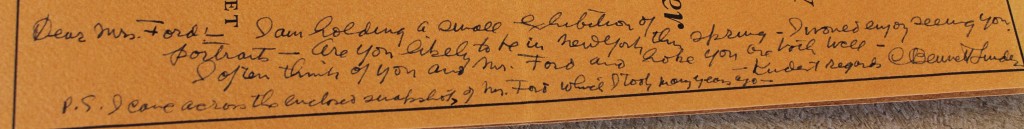 Dear Mrs. Ford:- I am holding a small exhibition of
portraits - Are you likely to be in New York this spring - I would enjoy seeing you
I often think of you and Mr. Ford and hope you are both well -
Kindest regards C Bennett Linder
P.S. I came across the enclosed snapshots of Mr. Ford which I took many years ago -
ET
ey